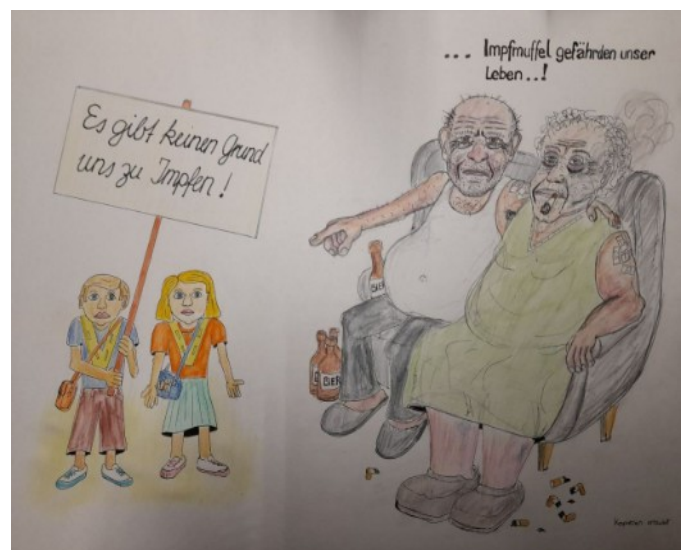 Es gibt keinen Grund
uns zu Impfen !
... Impfmuffel gefährden unser
Leben..!
BIER
BIER